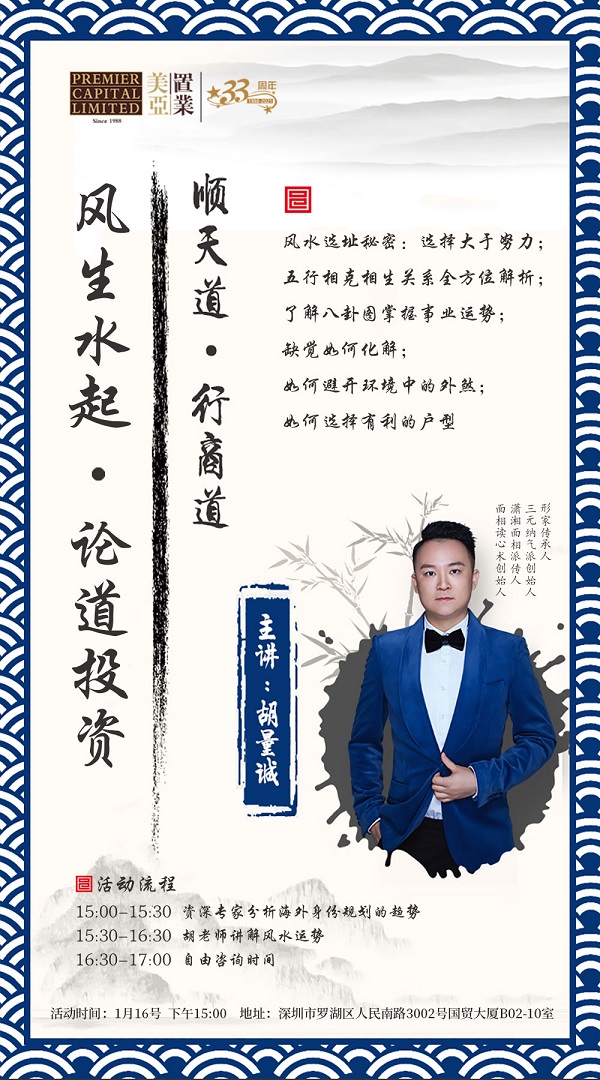 PREMIER
CAPITAL
LIMITED
Since 1988
美亞
置業
33
周年
1988-2021
风生水起·论道投资
顺天道·行商道
风水选址秘密：选择大于努力；
五行相克相生关系全方位解析；
了解八卦图掌握事业运势；
缺觉如何化解；
如何避开环境中的外煞；
如何选择有利的户型
形家传承人
三元纳气派创始人
潇湘面相派传人
面相读心术创始人
主讲：胡量诚
活动流程
15:00-15:30 资深专家分析海外身份规划的趋势
15:30-16:30 胡老师讲解风水运势
16:30-17:00 自由咨询时间
活动时间：1月16号 下午15:00 地址：深圳市罗湖区人民南路3002号国贸大厦B02-10室